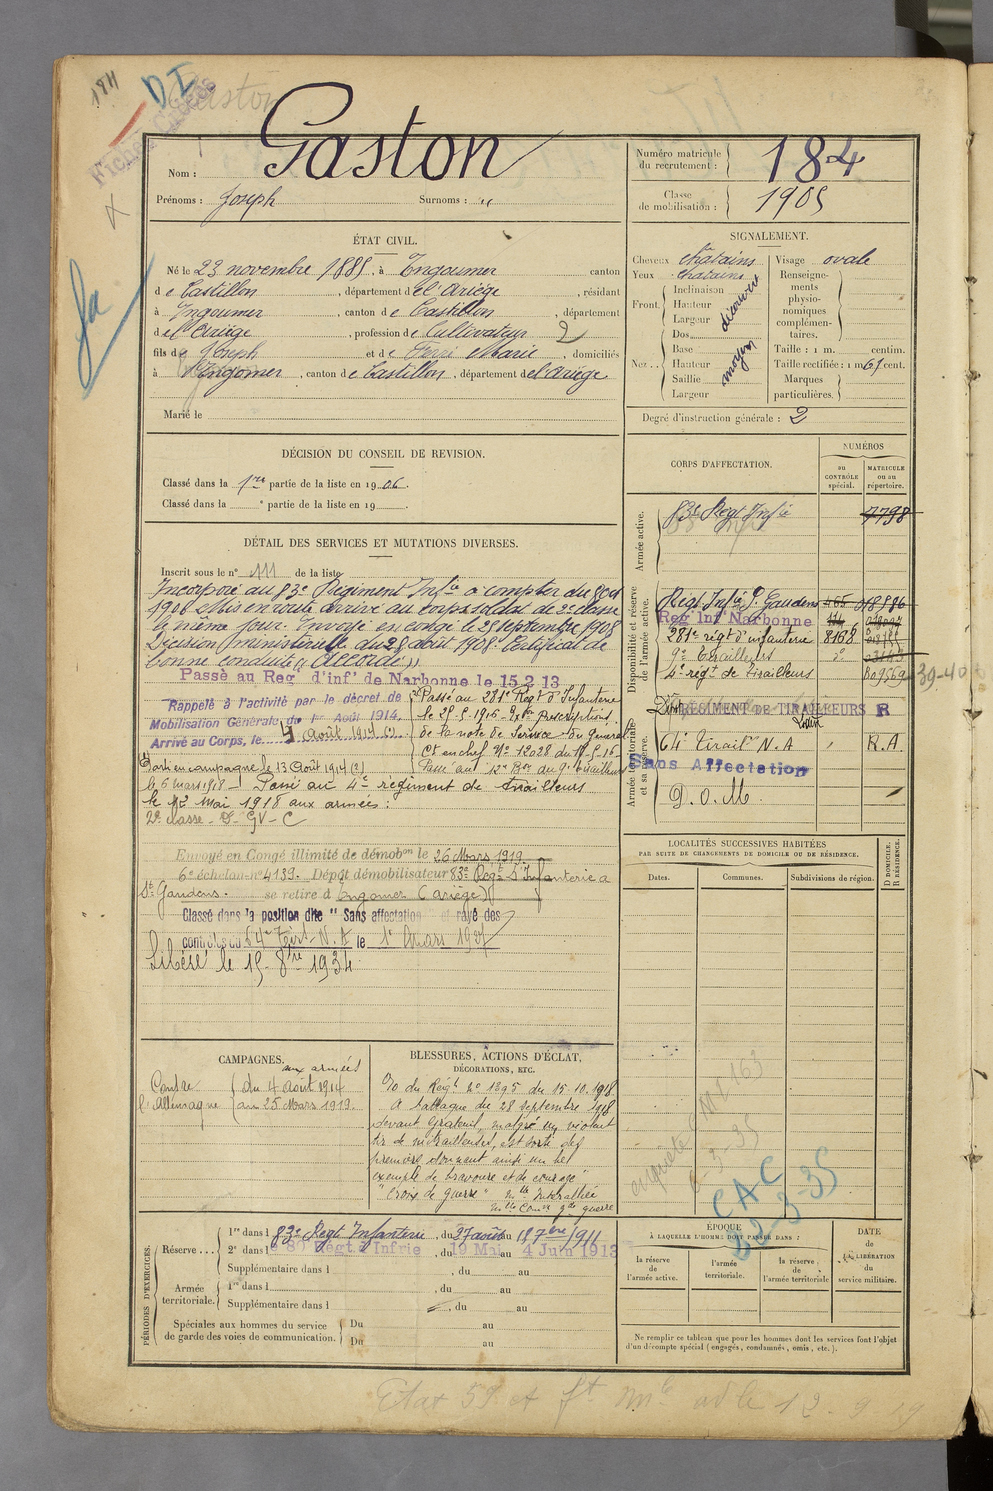 1911
DI
Gaston
Fiches Croos
Nom : Gaston
Prénoms : Joseph Surnoms : "
Numéro matricule du recrutement : 184
Classe de mobilisation : 1905
ÉTAT CIVIL.
Né le 23 novembre 1885, à Engoumer canton
de Castillon, département de l'Ariège, résidant
à Engoumer, canton de Castillon, département
de l'Ariège, profession de Cultivateur
fils de Joseph et de Ferré Marie, domiciliés
à Engomer, canton de Castillon, département de l'Ariège
Marié le
SIGNALEMENT.
Cheveux châtains
Yeux châtains
Front. Inclinaison
Hauteur
Largeur
Nez. Dos
Base
Hauteur moyen
Saillie
Largeur
Visage ovale
Renseignements physionomiques complémentaires.
Taille : 1 m. centim.
Taille rectifiée : 1 m 61 cent.
Marques particulières.
Degré d'instruction générale : 2
DÉCISION DU CONSEIL DE REVISION.
Classé dans la 1re partie de la liste en 1906.
Classé dans la e partie de la liste en 19
DÉTAIL DES SERVICES ET MUTATIONS DIVERSES.
Inscrit sous le n° 111 de la liste
Incorporé au 83e Régiment Infie à compter du 8 oct
1906 et mis en route arrivé au corps et soldat de 2e classe
le même jour. Envoyé en congé le 25 septembre 1908
Décision ministérielle du 28 août 1908. Certificat de
bonne conduite "Accordé"
Passé au Regt d'inf de Narbonne le 15 2 13
Rappelé à l'activité par le décret de
Mobilisation Générale du 1er Août 1914.
Arrivé au Corps, le 4 Août 1914
Parti en campagne le 13 Août 1914
Passé au 281e Regt d'Infanterie
le 25-5-1916
de la note de Service du Général
Ct en chef No 12028 du 17-5-16
Passé au 12e Bon du 9e tirailleurs
le 6 mars 1918 - Passé au 4e régiment de tirailleurs
le 1er Mai 1918 aux armées :
2e classe - D - GV - C
Envoyé en Congé illimité de démobon le 26 Mars 1919
6e échelon n° 4139. Dépôt démobilisateur 83e Regt d'Infanterie a
St Gaudens. se retire à Engomer (Ariège)
Classé dans la position dite "Sans affectation" et rayé des
contrôles du 64e Tirt N.A le 1er Mars 1927
Libéré le 15 8bre 1934
CORPS D'AFFECTATION.
NUMÉROS
au CONTRÔLE spécial.
MATRICULE ou au répertoire.
Armée active.
83e Regt Infie 7798
Disponibilité et réserve de l'armée active.
Regt Infie St Gaudens 465 018586
Reg Inf Narbonne
281e régt d'infanterie 8168
9e Tirailleurs
4e régt de Tirailleurs 809569
39-40
Armée territoriale et sa réserve.
RÉGIMENT DE TIRAILLEURS R
64e Tiraillrs N.A R.A.
Sans Affectation
D.O.M.
LOCALITÉS SUCCESSIVES HABITÉES
PAR SUITE DE CHANGEMENTS DE DOMICILE OU DE RÉSIDENCE.
Dates.
Communes.
Subdivisions de région.
D DOMICILE. R RÉSIDENCE.
enquête CM 1163
6-3-35
CAC
22-3-35
CAMPAGNES.
aux armées
Contre l'Allemagne
du 4 août 1914
au 25 Mars 1919.
BLESSURES, ACTIONS D'ÉCLAT,
DÉCORATIONS, ETC.
O/o du Regt no 1295 du 15.10.1918
A l'attaque du 28 septembre 1918
devant Grateuil, malgré un violent
tir de mitrailleuses, est sorti des
premiers donnant ainsi un bel
exemple de bravoure et de courage"
"Croix de guerre" Mlle Interalliée
Mlle Comve gde guerre
PÉRIODES D'EXERCICES.
Réserve... 1re dans l 83e Regt Infanterie, du 27 août au 18 7bre 1911
2e dans l e 80 Régt d'Infrie, du 19 Mai au 4 Juin 1913
Supplémentaire dans l , du au
Armée territoriale. 1re dans l , du au
Supplémentaire dans l , du au
Spéciales aux hommes du service de garde des voies de communication. Du au
Du au
ÉPOQUE
À LAQUELLE L'HOMME DOIT PASSER DANS :
la réserve de l'armée active.
l'armée territoriale.
la réserve de l'armée territoriale
DATE de LA LIBÉRATION du service militaire.
Ne remplir ce tableau que pour les hommes dont les services font l'objet
d'un décompte spécial (engagés, condamnés, omis, etc.).